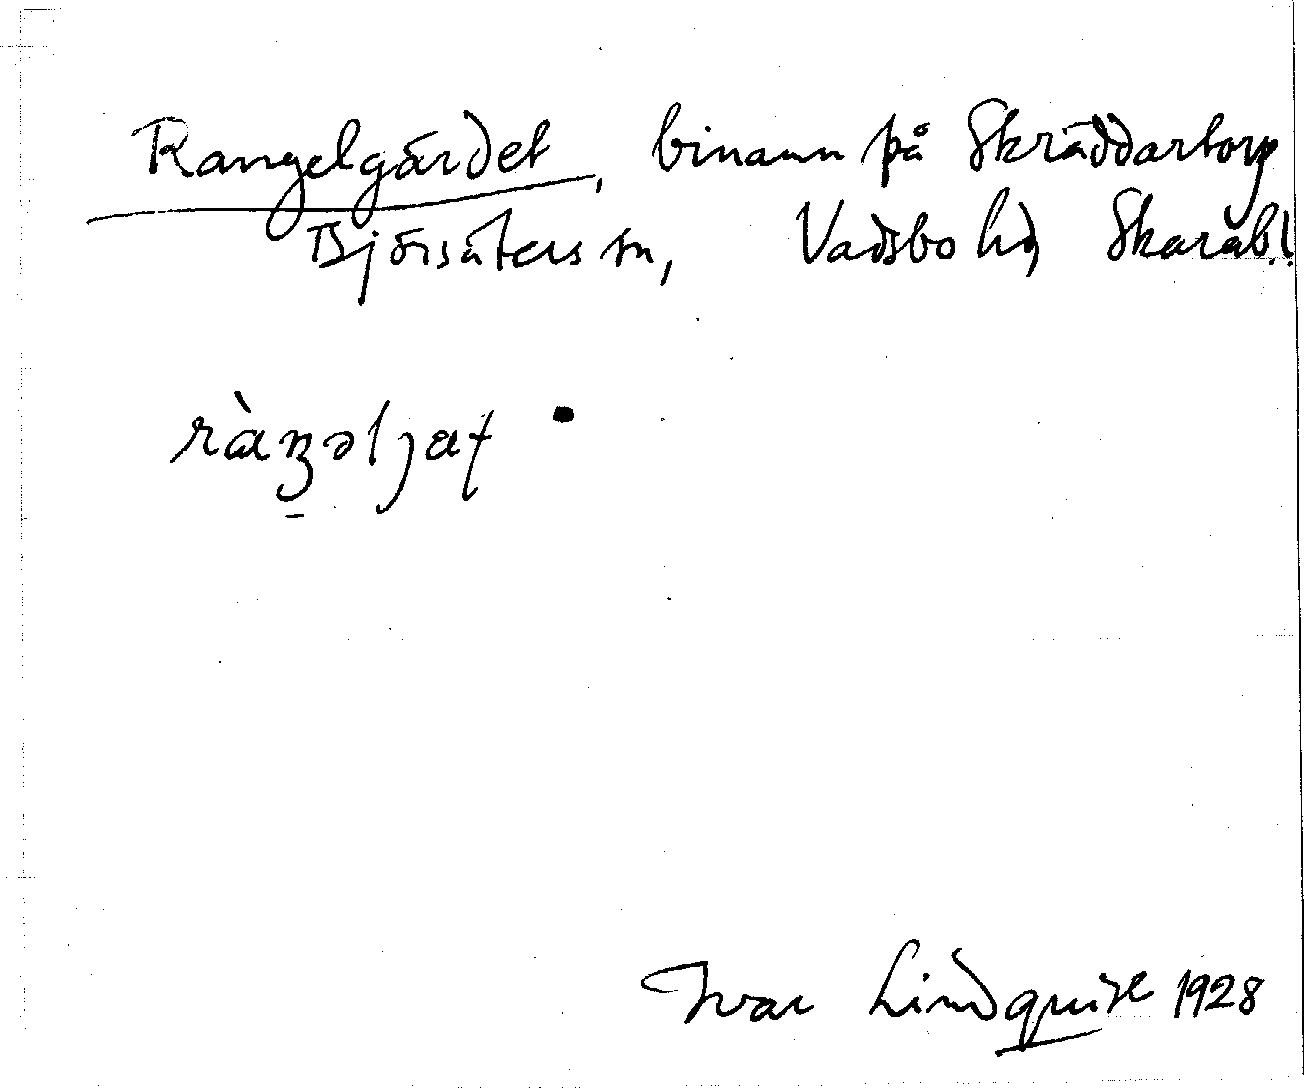 Rangelgärdet, binamn på Skräddartorp
Björsäters sn, Vadsbo hd, Skarab.l.
Ivar Lindquist 1928